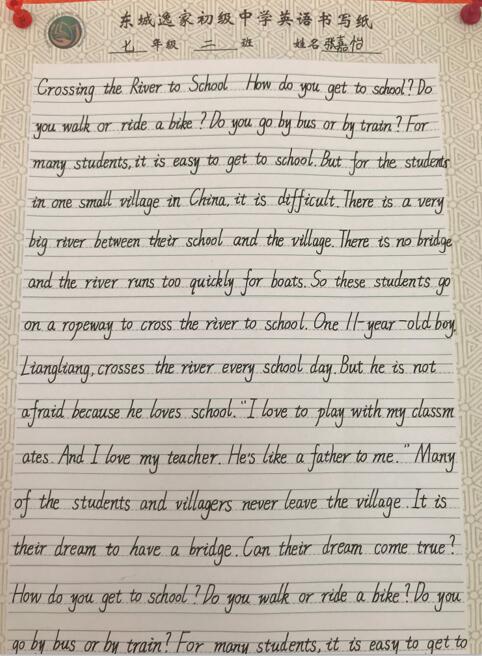 东城逸家初级中学英语书写纸
七 年级 二 班 姓名 张嘉怡
Crossing the River to School How do you get to school? Do
you walk or ride a bike? Do you go by bus or by train? For
many students, it is easy to get to school. But for the students
in one small village in China, it is difficult. There is a very
big river between their school and the village. There is no bridge
and the river runs too quickly for boats. So these students go
on a ropeway to cross the river to school. One 11-year-old boy,
Liangliang, crosses the river every school day. But he is not
afraid because he loves school. "I love to play with my classm
ates. And I love my teacher. He's like a father to me." Many
of the students and villagers never leave the village. It is
their dream to have a bridge. Can their dream come true?
How do you get to school? Do you walk or ride a bike? Do you
go by bus or by train? For many students, it is easy to get to